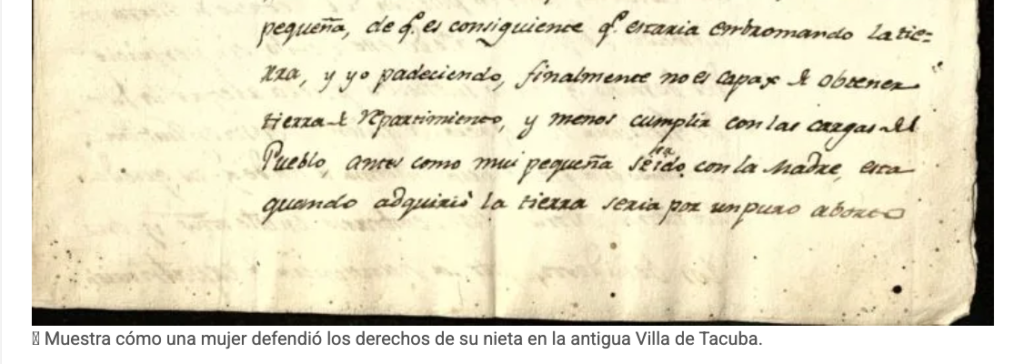 pequeña, de q.e es consiguiente q.e estaria embromando la tie=
rra, y yo padeciendo, finalmente no es capax de obtener
tierra de repartimiento, y menos cumplir con las cargas del
Pueblo antes como mui pequeña se ha ido con la Madre, esta
quando adquirió la tierra seria por un puro aborto
Muestra cómo una mujer defendió los derechos de su nieta en la antigua Villa de Tacuba.